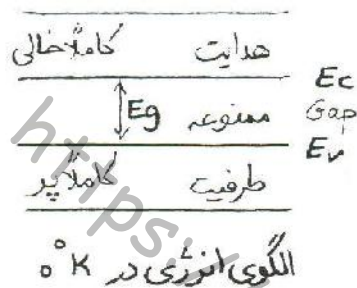 هدایت کاملاً خالی
Ec
Eg ممنوعه Gap
Ev
ظرفیت کاملاً پر
الگوی انرژی در 0°K
https: